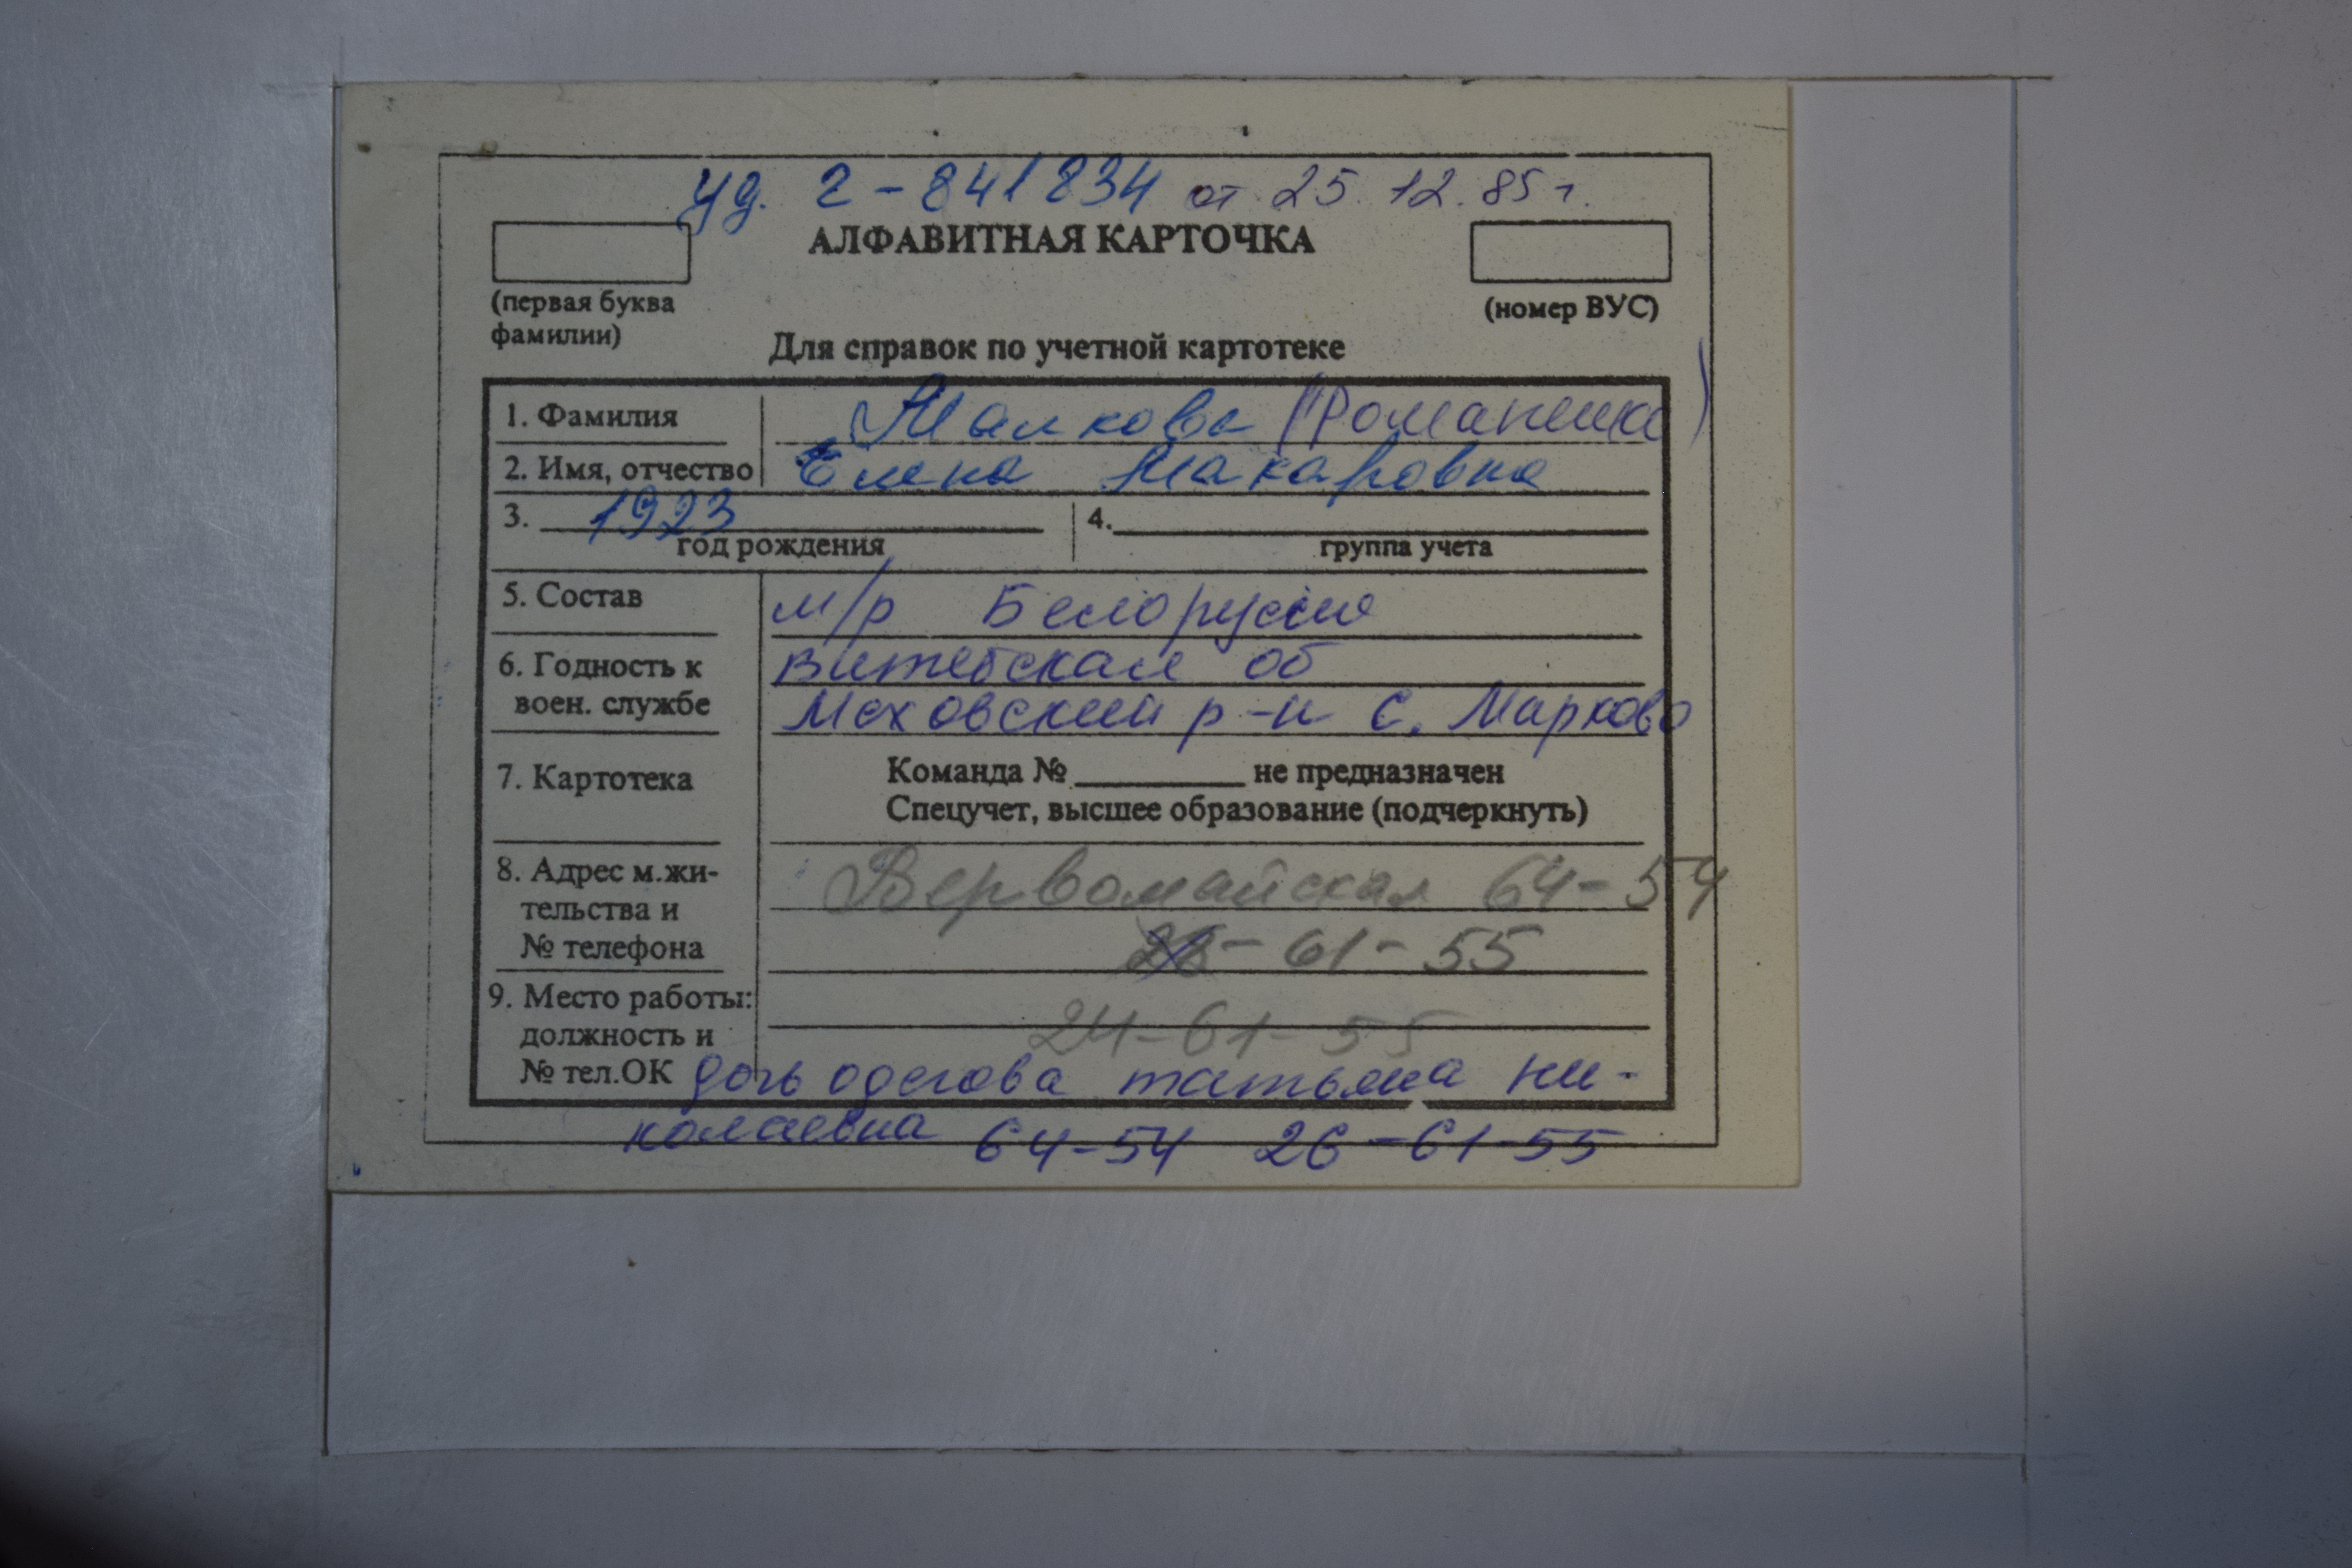 уд. 2-841834 от 25.12.85 г.
АЛФАВИТНАЯ КАРТОЧКА
(первая буква
фамилии)
(номер ВУС)
Для справок по учетной картотеке
1. Фамилия Малкова (Романенко)
2. Имя, отчество Елена Макаровна
3. 1923 4.
год рождения группа учета
5. Состав м/р Белоруссия
6. Годность к Витебская об
воен. службе Меховский р-н с. Марково
7. Картотека Команда № не предназначен
Спецучет, высшее образование (подчеркнуть)
8. Адрес м.жи- Первомайская 64-54
тельства и
№ телефона 61-55
9. Место работы:
должность и 24-61-55
№ тел.ОК дочь одегова татьяна ни-
колаевна 64-54 26-61-55